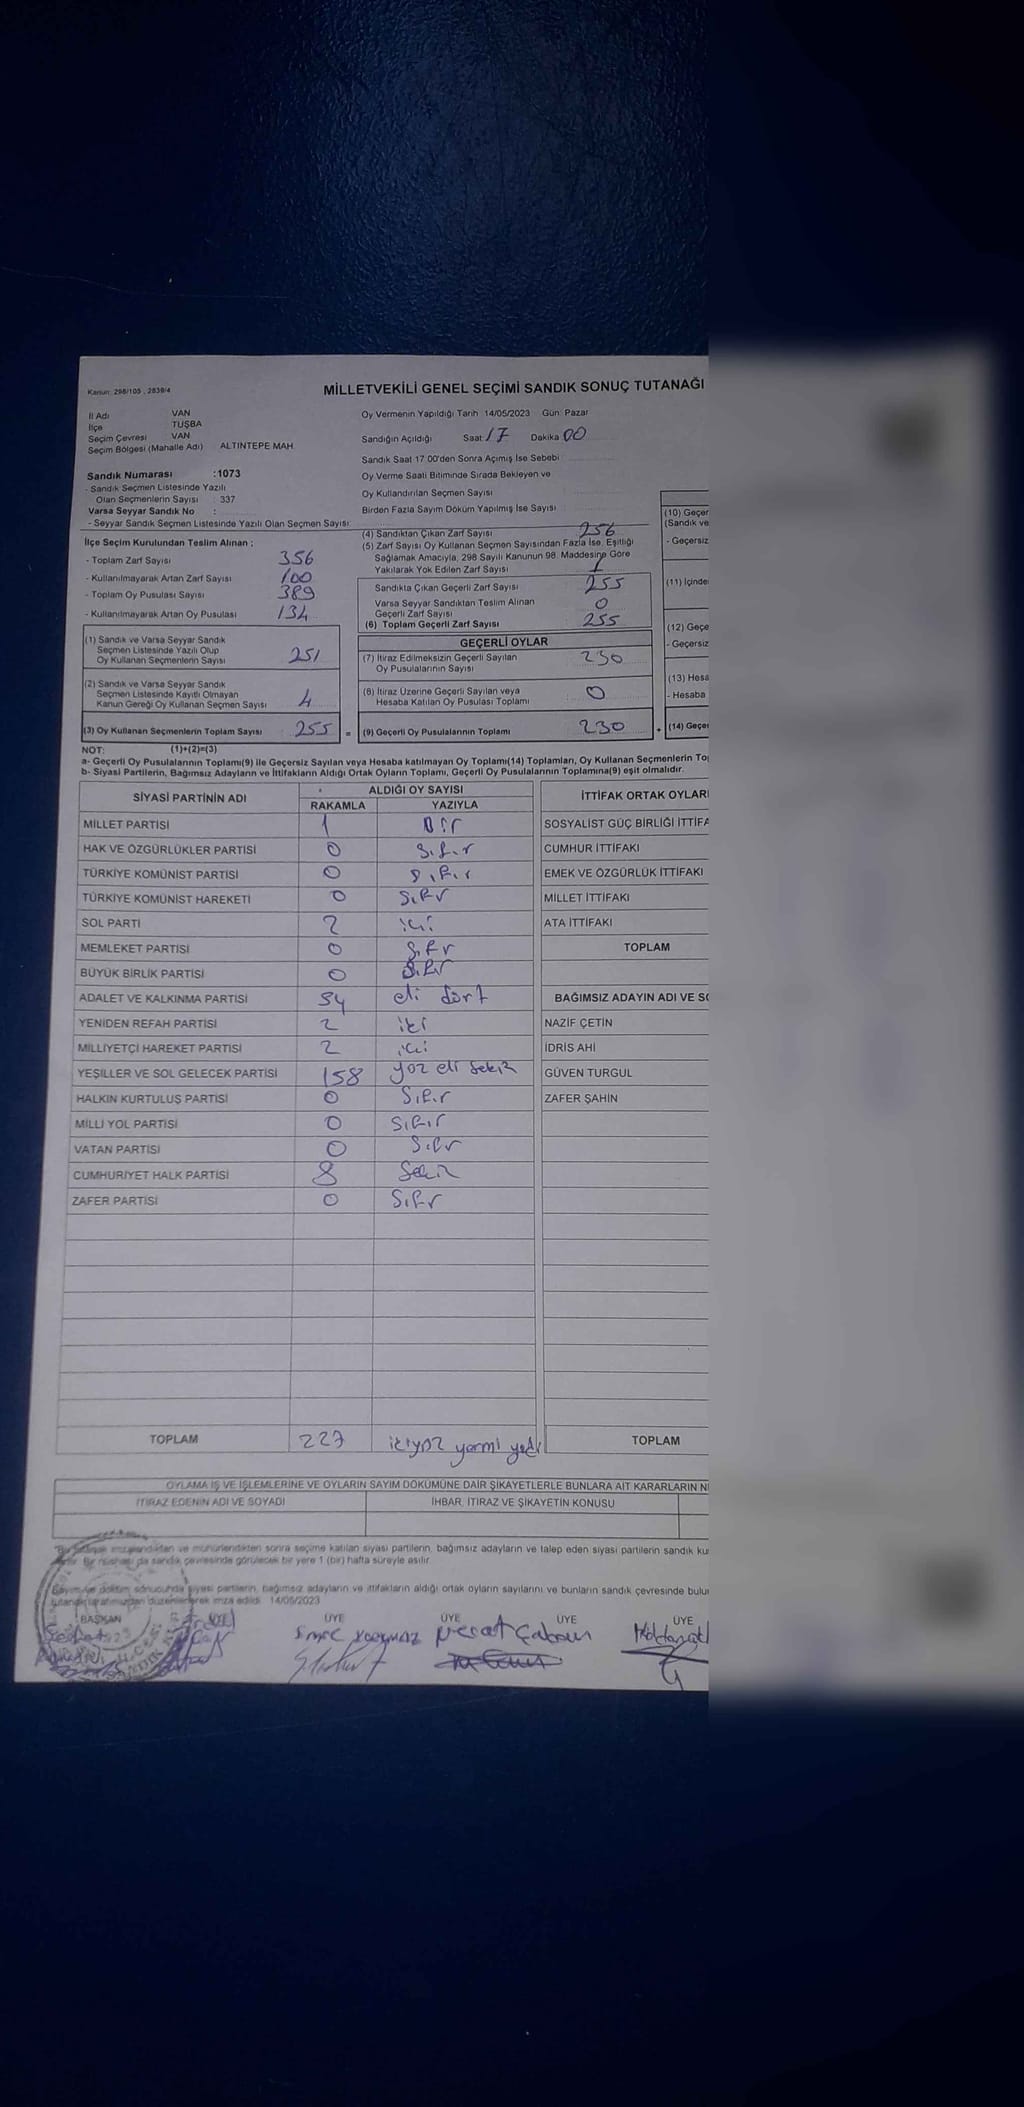 Kanun: 298/105, 2839/4
MİLLETVEKİLİ GENEL SEÇİMİ SANDIK SONUÇ TUTANAĞI
İl Adı VAN
İlçe TUŞBA
Seçim Çevresi VAN
Seçim Bölgesi (Mahalle Adı) ALTINTEPE MAH.
Oy Vermenin Yapıldığı Tarih 14/05/2023 Gün Pazar
Sandığın Açıldığı Saat 17 Dakika 00
Sandık Saat 17.00'den Sonra Açımış İse Sebebi
Oy Verme Saati Bitiminde Sırada Bekleyen ve
Oy Kullandırılan Seçmen Sayısı
Birden Fazla Sayım Döküm Yapılmış İse Sayısı
Sandık Numarası :1073
- Sandık Seçmen Listesinde Yazılı
Olan Seçmenlerin Sayısı : 337
Varsa Seyyar Sandık No :
- Seyyar Sandık Seçmen Listesinde Yazılı Olan Seçmen Sayısı:
İlçe Seçim Kurulundan Teslim Alınan :
- Toplam Zarf Sayısı 356
- Kullanılmayarak Artan Zarf Sayısı 100
- Toplam Oy Pusulası Sayısı 389
- Kullanılmayarak Artan Oy Pusulası 134
(4) Sandıktan Çıkan Zarf Sayısı 256
(5) Zarf Sayısı Oy Kullanan Seçmen Sayısından Fazla İse, Eşitliği
Sağlamak Amacıyla, 298 Sayılı Kanunun 98. Maddesine Göre
Yakılarak Yok Edilen Zarf Sayısı 1
Sandıkta Çıkan Geçerli Zarf Sayısı 255
Varsa Seyyar Sandıktan Teslim Alınan
Geçerli Zarf Sayısı 0
(6) Toplam Geçerli Zarf Sayısı 255
(1) Sandık ve Varsa Seyyar Sandık
Seçmen Listesinde Yazılı Olup
Oy Kullanan Seçmenlerin Sayısı 251
(2) Sandık ve Varsa Seyyar Sandık
Seçmen Listesinde Kayıtlı Olmayan
Kanun Gereği Oy Kullanan Seçmen Sayısı 4
(3) Oy Kullanan Seçmenlerin Toplam Sayısı 255 =
GEÇERLİ OYLAR
(7) İtiraz Edilmeksizin Geçerli Sayılan
Oy Pusulalarının Sayısı 230
(8) İtiraz Üzerine Geçerli Sayılan veya
Hesaba Katılan Oy Pusulası Toplamı 0
(9) Geçerli Oy Pusulalarının Toplamı 230 +
(10) Geçer
(Sandık ve
- Geçersiz
(11) İçinde
(12) Geçe
- Geçersiz
(13) Hesa
- Hesaba
(14) Geçe
NOT: (1)+(2)=(3)
a- Geçerli Oy Pusulalarının Toplamı(9) ile Geçersiz Sayılan veya Hesaba katılmayan Oy Toplamı(14) Toplamları, Oy Kullanan Seçmenlerin To
b- Siyasi Partilerin, Bağımsız Adayların ve İttifakların Aldığı Ortak Oyların Toplamı, Geçerli Oy Pusulalarının Toplamına(9) eşit olmalıdır.
SİYASİ PARTİNİN ADI
ALDIĞI OY SAYISI
RAKAMLA YAZIYLA
MİLLET PARTİSİ 1 Bir
HAK VE ÖZGÜRLÜKLER PARTİSİ 0 Sıfır
TÜRKİYE KOMÜNİST PARTİSİ 0 Sıfır
TÜRKİYE KOMÜNİST HAREKETİ 0 Sıfır
SOL PARTİ 2 iki
MEMLEKET PARTİSİ 0 Sıfır
BÜYÜK BİRLİK PARTİSİ 0 Sıfır
ADALET VE KALKINMA PARTİSİ 54 eli dört
YENİDEN REFAH PARTİSİ 2 iki
MİLLİYETÇİ HAREKET PARTİSİ 2 iki
YEŞİLLER VE SOL GELECEK PARTİSİ 158 yüz eli sekiz
HALKIN KURTULUŞ PARTİSİ 0 Sıfır
MİLLİ YOL PARTİSİ 0 Sıfır
VATAN PARTİSİ 0 Sıfır
CUMHURİYET HALK PARTİSİ 8 Sekiz
ZAFER PARTİSİ 0 Sıfır
TOPLAM 227 ikiyüz yirmi yedi
İTTİFAK ORTAK OYLARI
SOSYALİST GÜÇ BİRLİĞİ İTTİFA
CUMHUR İTTİFAKI
EMEK VE ÖZGÜRLÜK İTTİFAKI
MİLLET İTTİFAKI
ATA İTTİFAKI
TOPLAM
BAĞIMSIZ ADAYIN ADI VE SO
NAZİF ÇETİN
İDRİS AHİ
GÜVEN TURGUL
ZAFER ŞAHİN
TOPLAM
OYLAMA İŞ VE İŞLEMLERİNE VE OYLARIN SAYIM DÖKÜMÜNE DAİR ŞİKAYETLERLE BUNLARA AİT KARARLARIN Nİ
İTİRAZ EDENİN ADI VE SOYADI
İHBAR, İTİRAZ VE ŞİKAYETİN KONUSU
imzalandıktan ve mühürlendikten sonra seçime katılan siyasi partilerin, bağımsız adayların ve talep eden siyasi partilerin sandık ku
Bir nüshası da sandık çevresinde görülecek bir yere 1 (bir) hafta süreyle asılır.
Sayım ve döküm sonucunda siyasi partilerin, bağımsız adayların ve ittifakların aldığı ortak oyların sayılarını ve bunların sandık çevresinde bulu
tutanak tarafımızdan düzenlenerek imza edildi. 14/05/2023
BAŞKAN
ÜYE
ÜYE
ÜYE
ÜYE